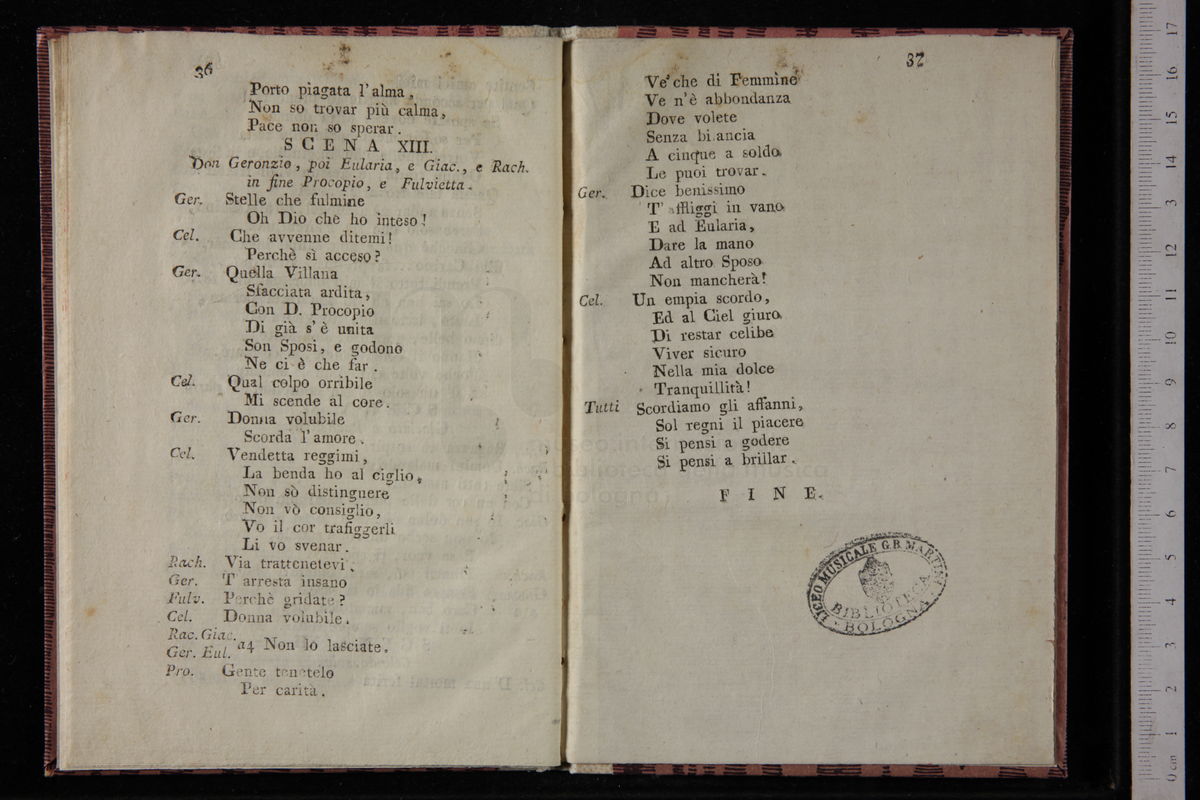 36
Porto piagata l'alma,
Non so trovar più calma,
Pace non so sperar.
SCENA XIII.
Don Geronzio, poi Eularia, e Giac., e Rach.
in fine Procopio, e Fulvietta.
Ger. Stelle che fulmine
Oh Dio che ho inteso!
Cel. Che avvenne ditemi!
Perchè sì acceso?
Ger. Quella Villana
Sfacciata ardita,
Con D. Procopio
Di già s'è unita
Son Sposi, e godono
Ne ci è che far.
Cel. Qual colpo orribile
Mi scende al core.
Ger. Donna volubile
Scorda l'amore.
Cel. Vendetta reggimi,
La benda ho al ciglio,
Non sò distinguere
Non vò consiglio,
Vo il cor trafiggerli
Li vo svenar.
Rach. Via trattenetevi.
Ger. T arresta insano
Fulv. Perchè gridate?
Cel. Donna volubile.
Rac. Giac.
Ger. Eul. a4 Non lo lasciate.
Pro. Gente tenetelo
Per carità.
37
Ve' che di Femmine
Ve n'è abbondanza
Dove volete
Senza bilancia
A cinque a soldo
Le puoi trovar.
Ger. Dice benissimo
T' affliggi in vano
E ad Eularia,
Dare la mano
Ad altro Sposo
Non mancherà!
Cel. Un empia scordo,
Ed al Ciel giuro
Di restar celibe
Viver sicuro
Nella mia dolce
Tranquillità!
Tutti Scordiamo gli affanni,
Sol regni il piacere
Si pensi a godere
Si pensi a brillar.
FINE.
LICEO MUSICALE G.B. MARTINI
BIBLIOTECA
BOLOGNA
0 cm 1 2 3 4 5 6 7 8 9 10 11 12 13 14 15 16 17